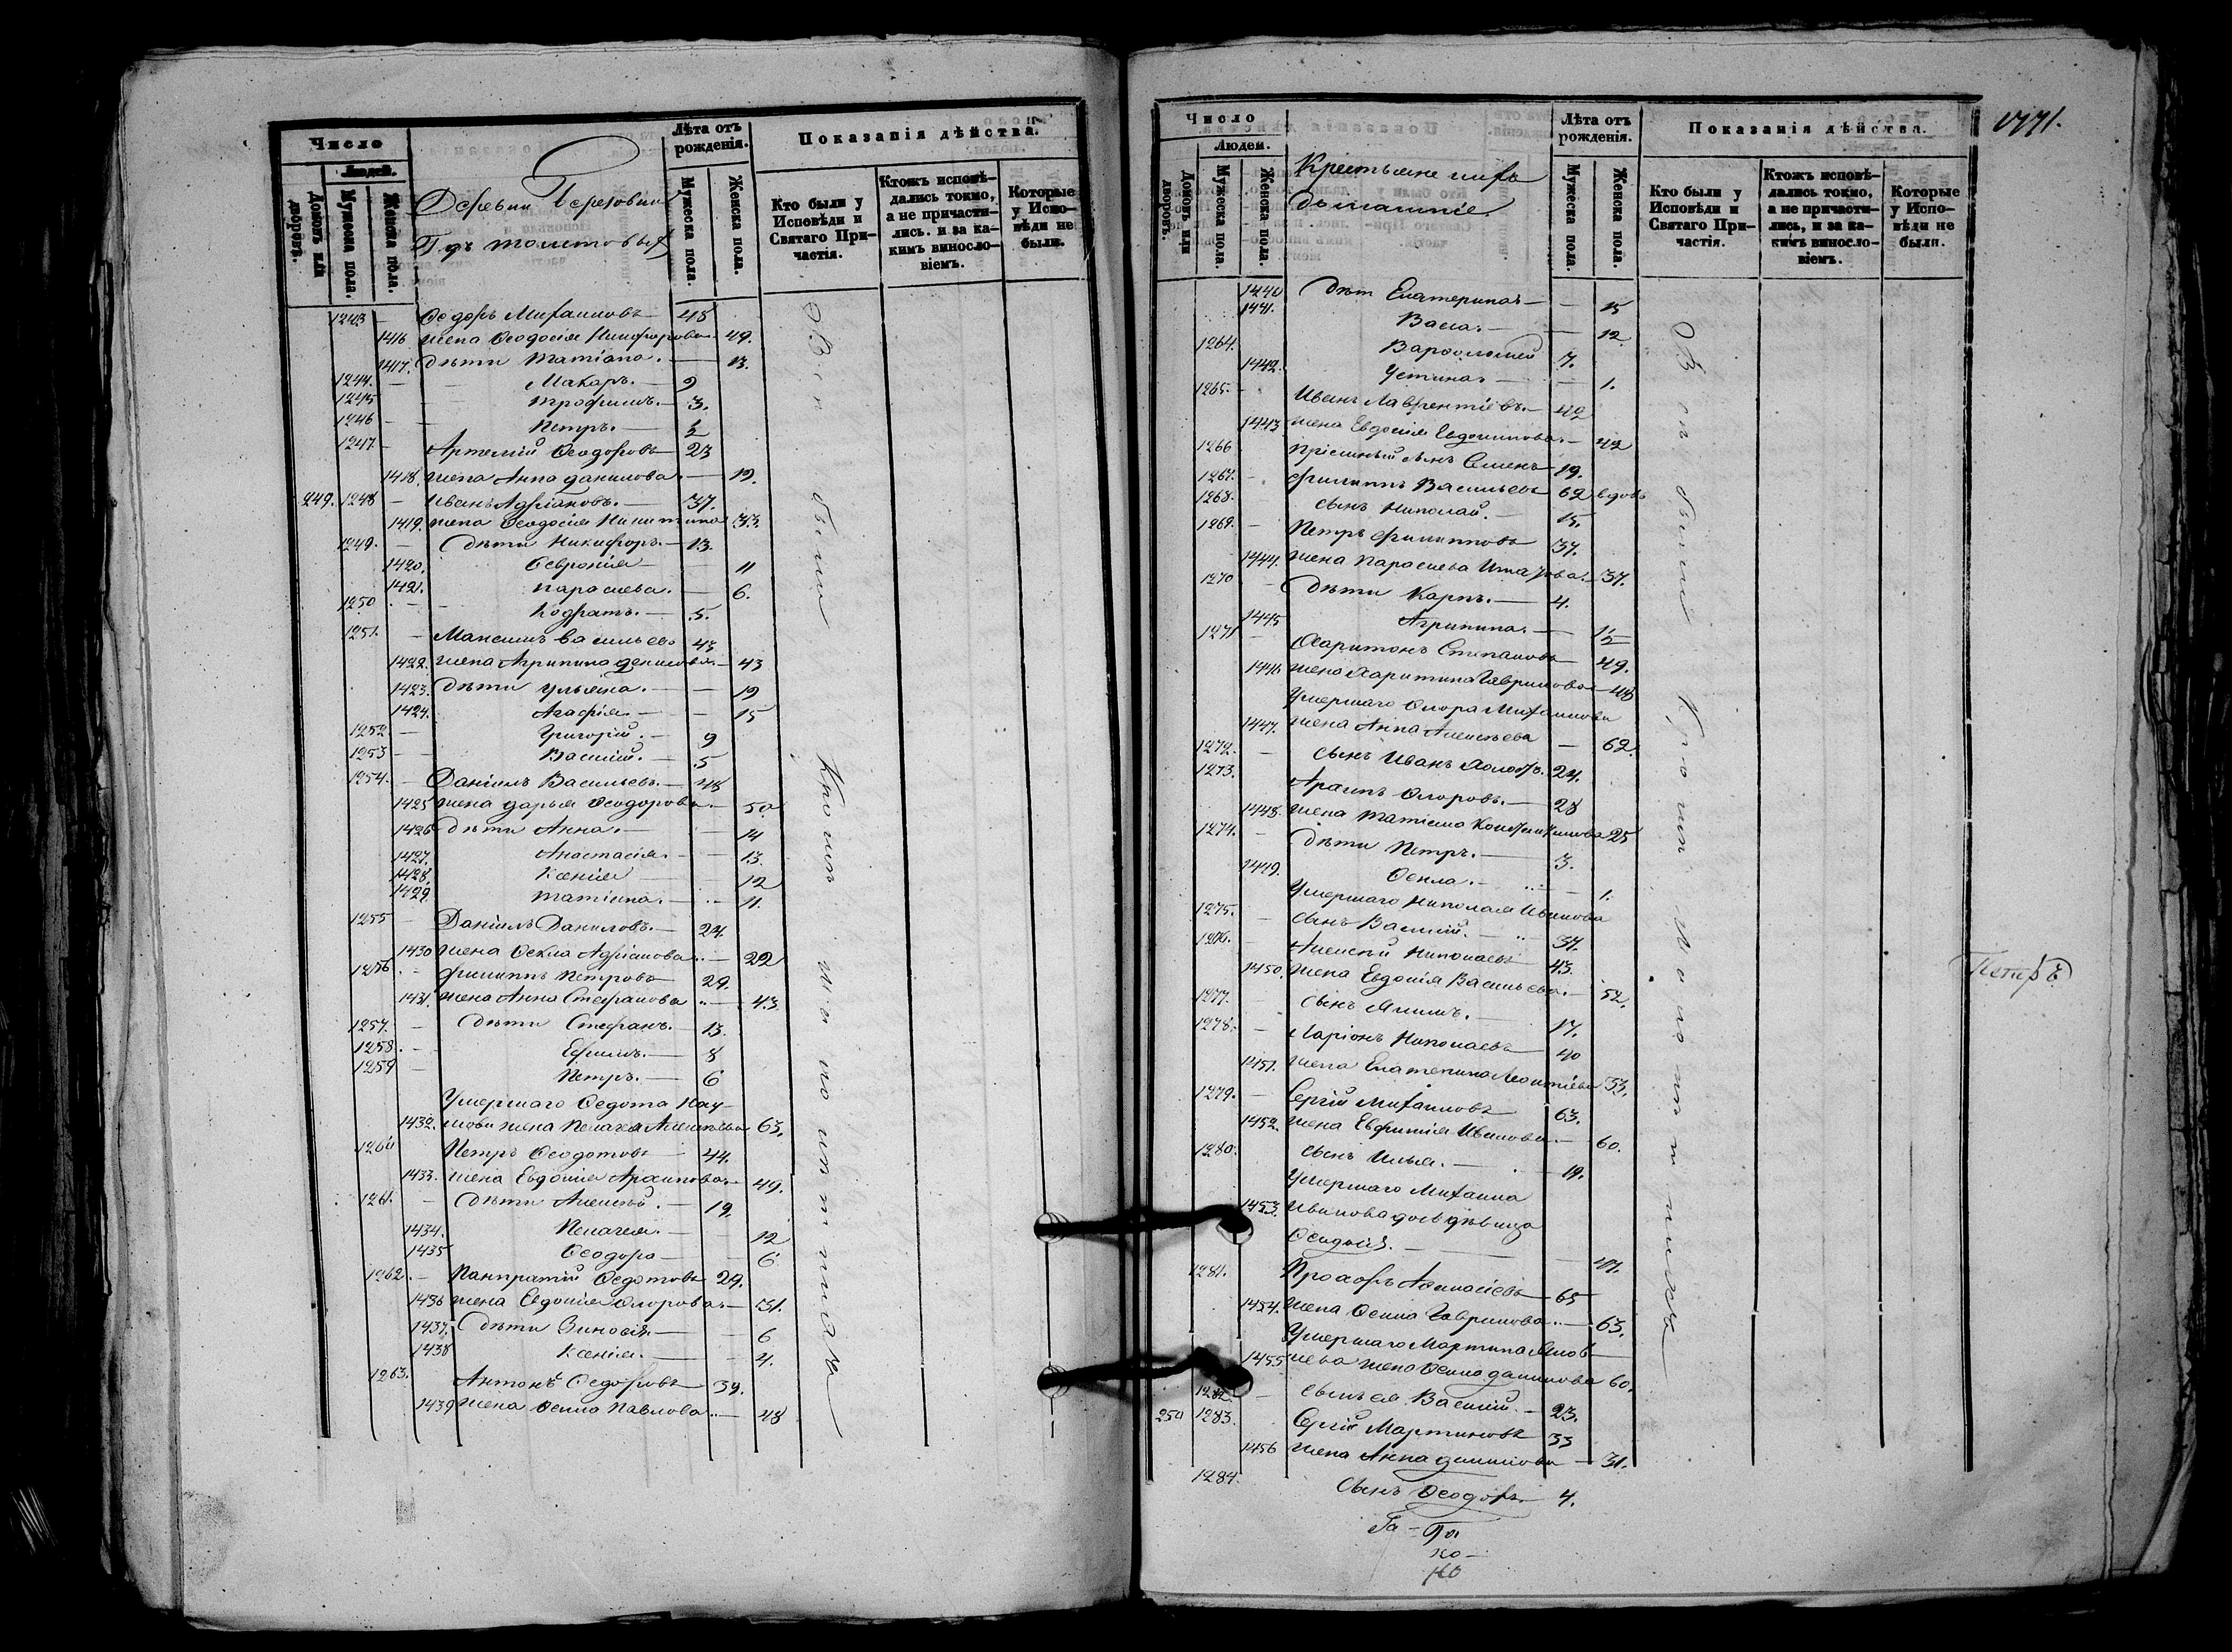 Число
Людей.
Домовъ или дворовъ.
Мужеска пола.
Женска пола.
Деревни Березовки
Г.дъ Толстовыхъ
Лѣта отъ рожденія.
Мужеска пола.
Женска пола.
Показанія дѣйства.
Кто были у Исповѣди и Святаго Причастія.
Ктожъ исповѣдались токмо, а не причастились. и за какимъ винословіемъ.
Которые у Исповѣди не были.
1243 — Ѳеодоръ Михаиловъ — 45
1416 жена Ѳеодосія Никифорова — 49.
1417. дѣти Татіана. — 13.
1244. — Макаръ. — 9
1245 Трофимъ. — 3.
1246 — Петръ. — ½
1247 — Артемій Ѳеодоровъ 23
1418. жена Анна Данилова. — 19.
249. 1248 — Иванъ Адріановъ. — 37.
1419. жена Ѳеодосія Никитина 33.
1249. — Дѣти Никифоръ. — 13.
1420. Ѳевронія — 11
1421. Параскева. — 6.
1250 — Кодратъ. — 5.
1251. — Максимъ Васильевъ 43
1422. жена Агрипина Денисова — 43
1423. Дѣти Ульяна. — 19
1424. Агафія. — 15
1252 — Григорій. — 9
1253 — Василій. — 5
1254. — Даніилъ Васильевъ. — 48
1425 жена Дарья Ѳеодорова. — 50.
1426 дѣти Анна. — 14
1427. Анастасія. — 13.
1428. Ксенія — 12
1429. Татіана. — 11.
1255 — Даніилъ Даниловъ. — 24.
1430 жена Ѳекла Адріанова — 22
1256 — Филиппъ Петровъ 29.
1431. жена Анна Стефанова — 43.
1257. — Дѣти Стефанъ. — 13.
1258. — Ефимъ. — 8
1259 — Петръ. — 6
Умершаго Ѳедота Нау-
1432. мова жена Пелагея Алексѣева 63.
1260 Петръ Ѳеодотовъ 44.
1433. жена Евдокія Архипова. — 49.
1261. — Дѣти Алексѣй. — 19.
1434. Пелагея. — 12
1435 Ѳеодора — 6
1262. — Панкратій Ѳедотовъ 29.
1436 жена Евдокія Флорова — 31.
1437. Дѣти Зиновія. — 6
1438 Ксенія. — 4.
1263. Антонъ Ѳедоровъ 39.
1439 жена Ѳекла Павлова — 48
Всѣ были Кромѣ малолѣтнихъ
Число
Людей.
Домовъ или дворовъ.
Мужеска пола.
Женска пола.
Крестьяне ихъ
Домашніе
Лѣта отъ рожденія.
Мужеска пола.
Женска пола.
Показанія дѣйства.
Кто были у Исповѣди и Святаго Причастія.
Ктожъ исповѣдались токмо, а не причастились, и за какимъ винословіемъ.
Которые у Исповѣди не были.
1440 Дѣти Екатерина — 15
1441. Васса. — 12.
1264. Варѳоломей 7.
1442. Устина. — 1.
1265. — Иванъ Лаврентіевъ. — 42
1443 жена Евдокія Евдокимова. — 42
1266 пріемный сынъ Семенъ 19.
1267. — Филиппъ Васильевъ 62 вдовъ
1268. сынъ Николай. — 15.
1269. — Петръ Филипповъ 37.
1444. жена Параскева — 37.
1270 — Дѣти Карпъ. — 4.
1445 Агрипина. — ½
1271 — Харитонъ Степановъ 49.
1446 жена Харитина Гаврилова — 48
Умершаго Флора Михаилова
1447. жена Анна Алексѣева — 62.
1272. — сынъ Иванъ холостъ. 24.
1273. Архипъ Флоровъ. — 28
1448. жена Татіана 25
1274. — Дѣти Петръ. — 3.
1449. Ѳекла. — 1.
Умершаго Николая Иванова
1275. — сынъ Василій. — 37.
1276. — Алексѣй Николаевъ 43.
1450. жена Евдокія Васильева. — 52.
1277. — сынъ Якимъ. — 17.
1278. — Ларіонъ Николаевъ 40
1451. жена Екатерина Леонтіева 33.
1279. — Сергій Михаиловъ 63.
1452. жена Евфимія Иванова. — 60.
1280. сынъ Илья. — 19.
Умершаго Михаила
1453. Иванова дочь дѣвица
— 41.
1281. Прохоръ Аѳанасіевъ — 65
1454. жена Ѳекла Гаврилова. — 63.
Умершаго Мартина Яков-
1455 лева жена Ѳекла Данилова 60.
1282 — сынъ ея Василій. — 23.
250 1283. Сергій Мартиновъ 33
1456 жена Анна Данилова — 31.
1284. сынъ Ѳеодоръ. 4.
Всѣ были Кромѣ Малолѣтнихъ
1771.
Петръ